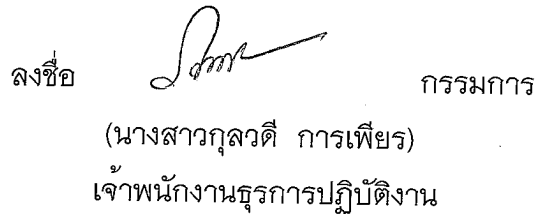 ลงชื่อ กรรมการ
(นางสาวกุลวดี การเพียร)
เจ้าพนักงานธุรการปฏิบัติงาน